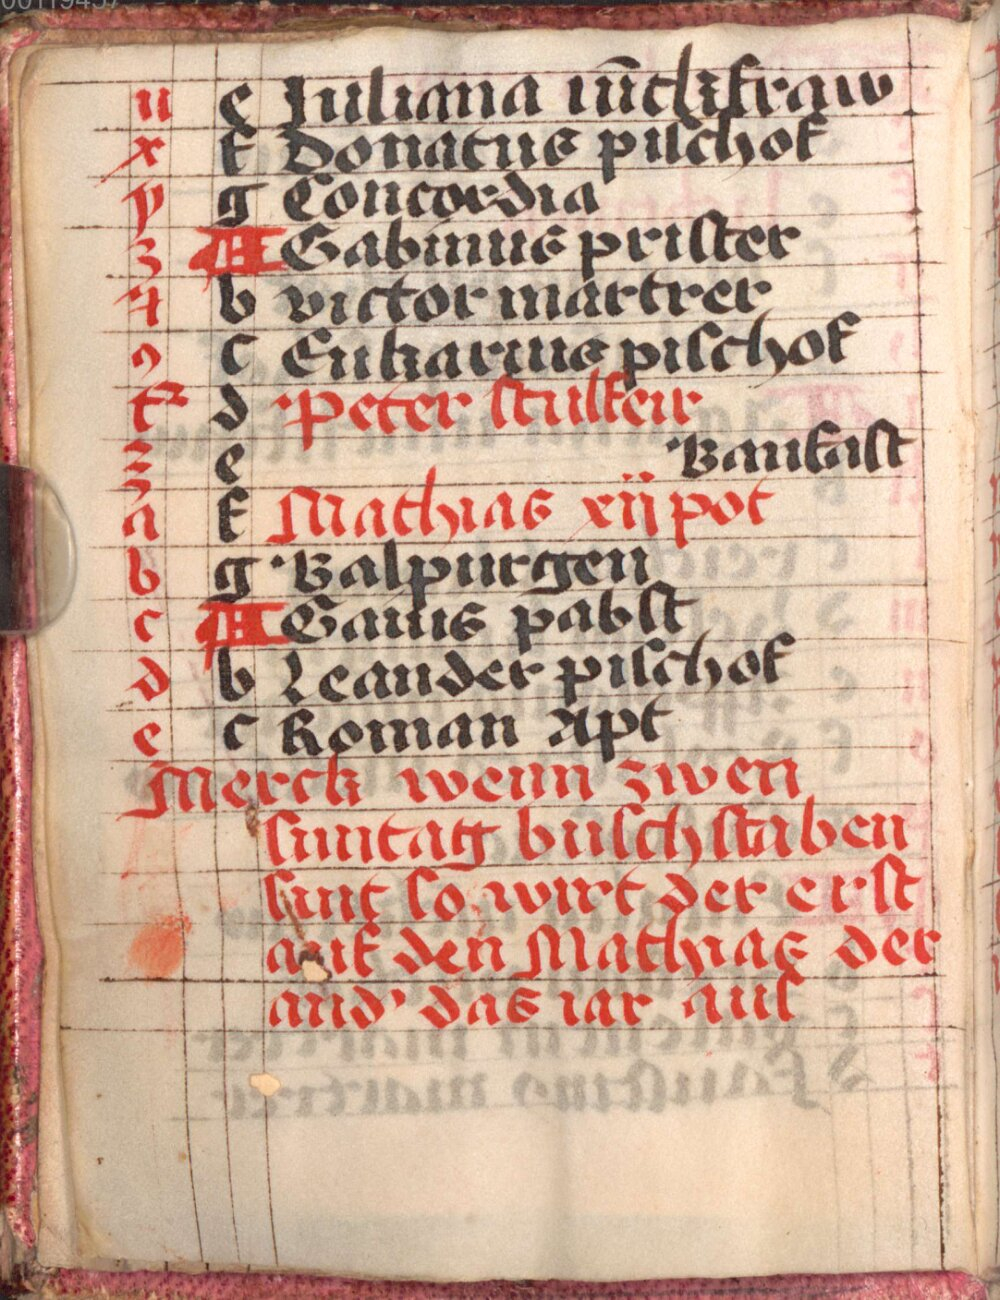 00119457
u e Juliana iu̅ckfraw
x f Donatus pischof
y g Concordia
z A Gabinus prister
4 b victor martrer
9 c Eukarius pischof
t d Peter stulfeir
z e Vanfast
a f Mathias xij pot
b g Valpurgen
c A Gaius pabst
d b Leander pischof
e c Roman Apt
Merck wenn zwen
suntag buschstaben
sint so wirt der erst
auf den Mathias der
and' das iar aus